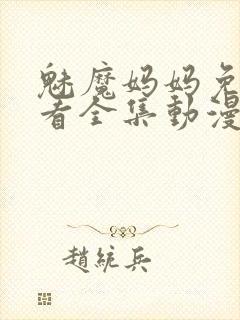 魅魔妈妈免
看全集動漫
趙統兵